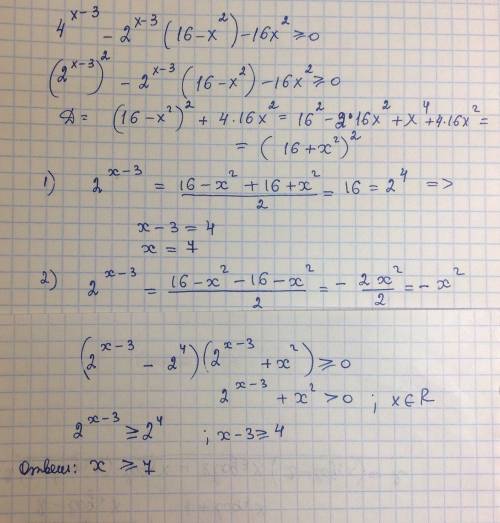 4^(x-3) - 2^(x-3) (16-x²) - 16x² ≥ 0
(2^(x-3))² - 2^(x-3) (16-x²) - 16x² ≥ 0
D = (16-x²)² + 4·16x² = 16² - 2·16x² + x⁴ + 4·16x² =
= (16+x²)²
1) 2^(x-3) = (16-x²+16+x²)/2 = 16 = 2⁴ =>
x-3 = 4
x = 7
2) 2^(x-3) = (16-x²-16-x²)/2 = - 2x²/2 = -x²
(2^(x-3) - 2⁴)(2^(x-3) + x²) ≥ 0
2^(x-3) + x² > 0 ; x∈R
2^(x-3) ≥ 2⁴ ; x-3 ≥ 4
Ответ: x ≥ 7